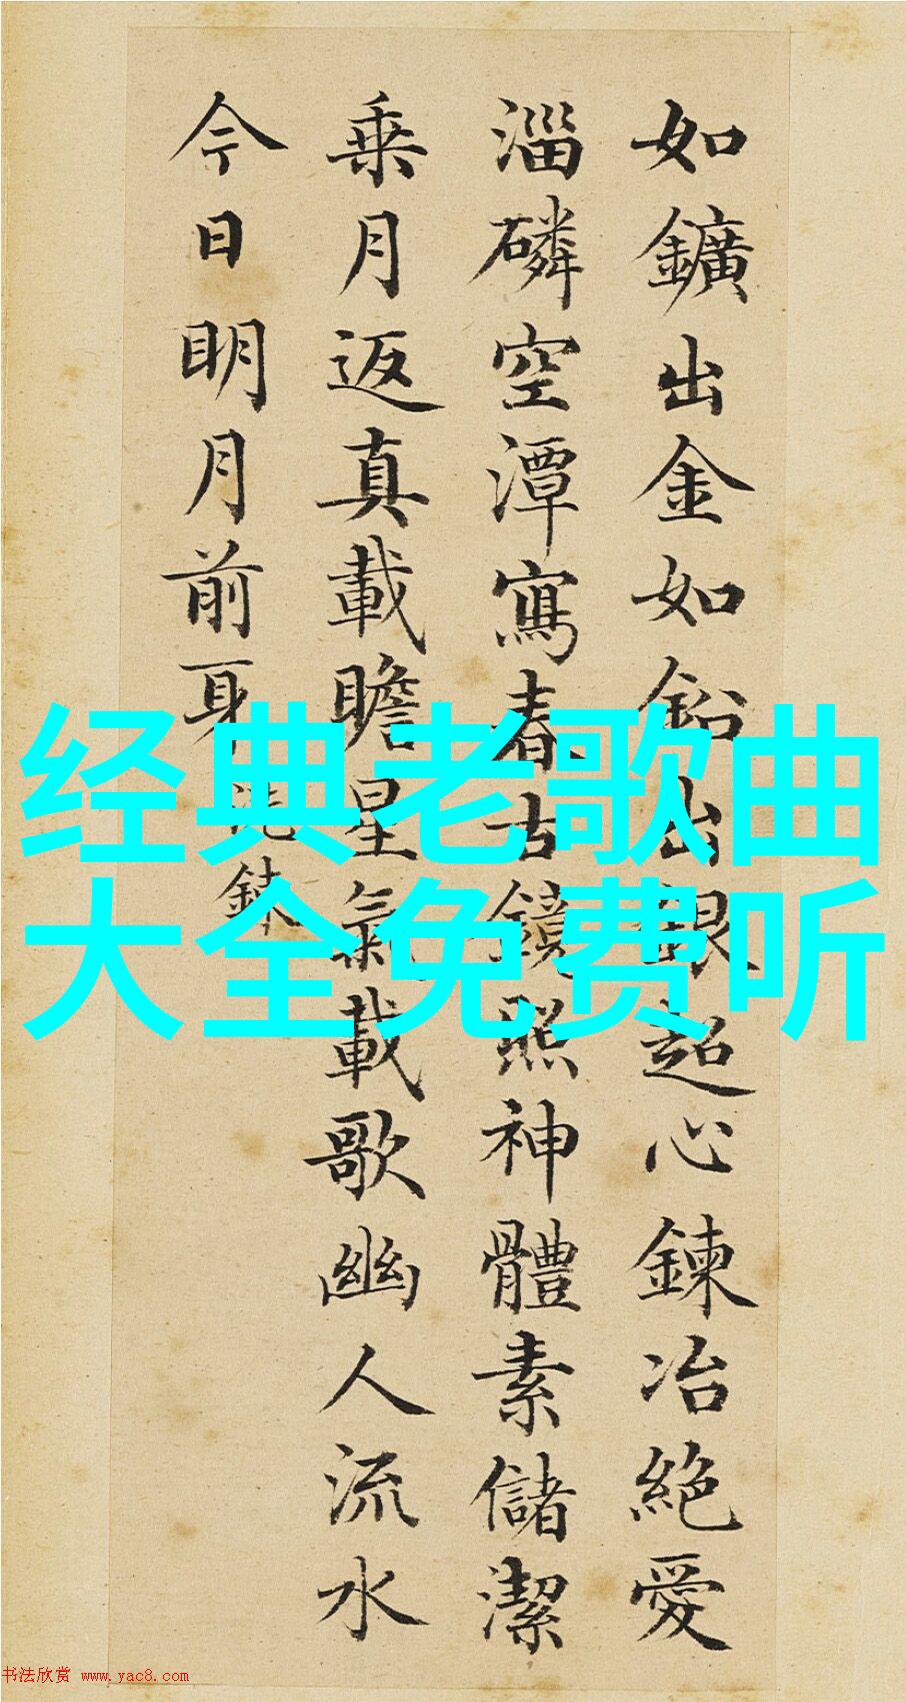 如鑛出金如鉛出銀超心鍊冶絶愛
淄磷空潭寫春古鏡照神體素儲潔
乗月返真載瞻星氣載歌幽人流水
今日明月前身 洗鍊
经典老歌曲
大全免费听
书法欣赏 www.yac8.com